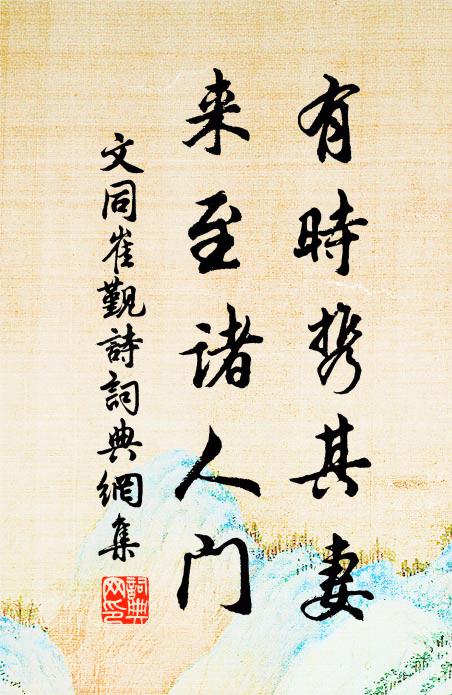 有時携其妻
来至諸人門
文同崔觐詩詞典網集
詞典
网印